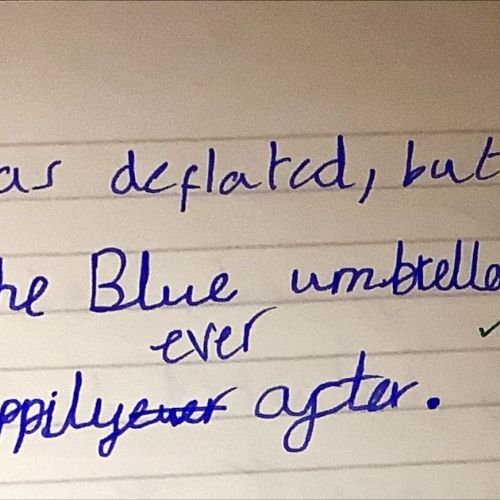 as deflated, but
he Blue umbrella
ever
ppily ever after.